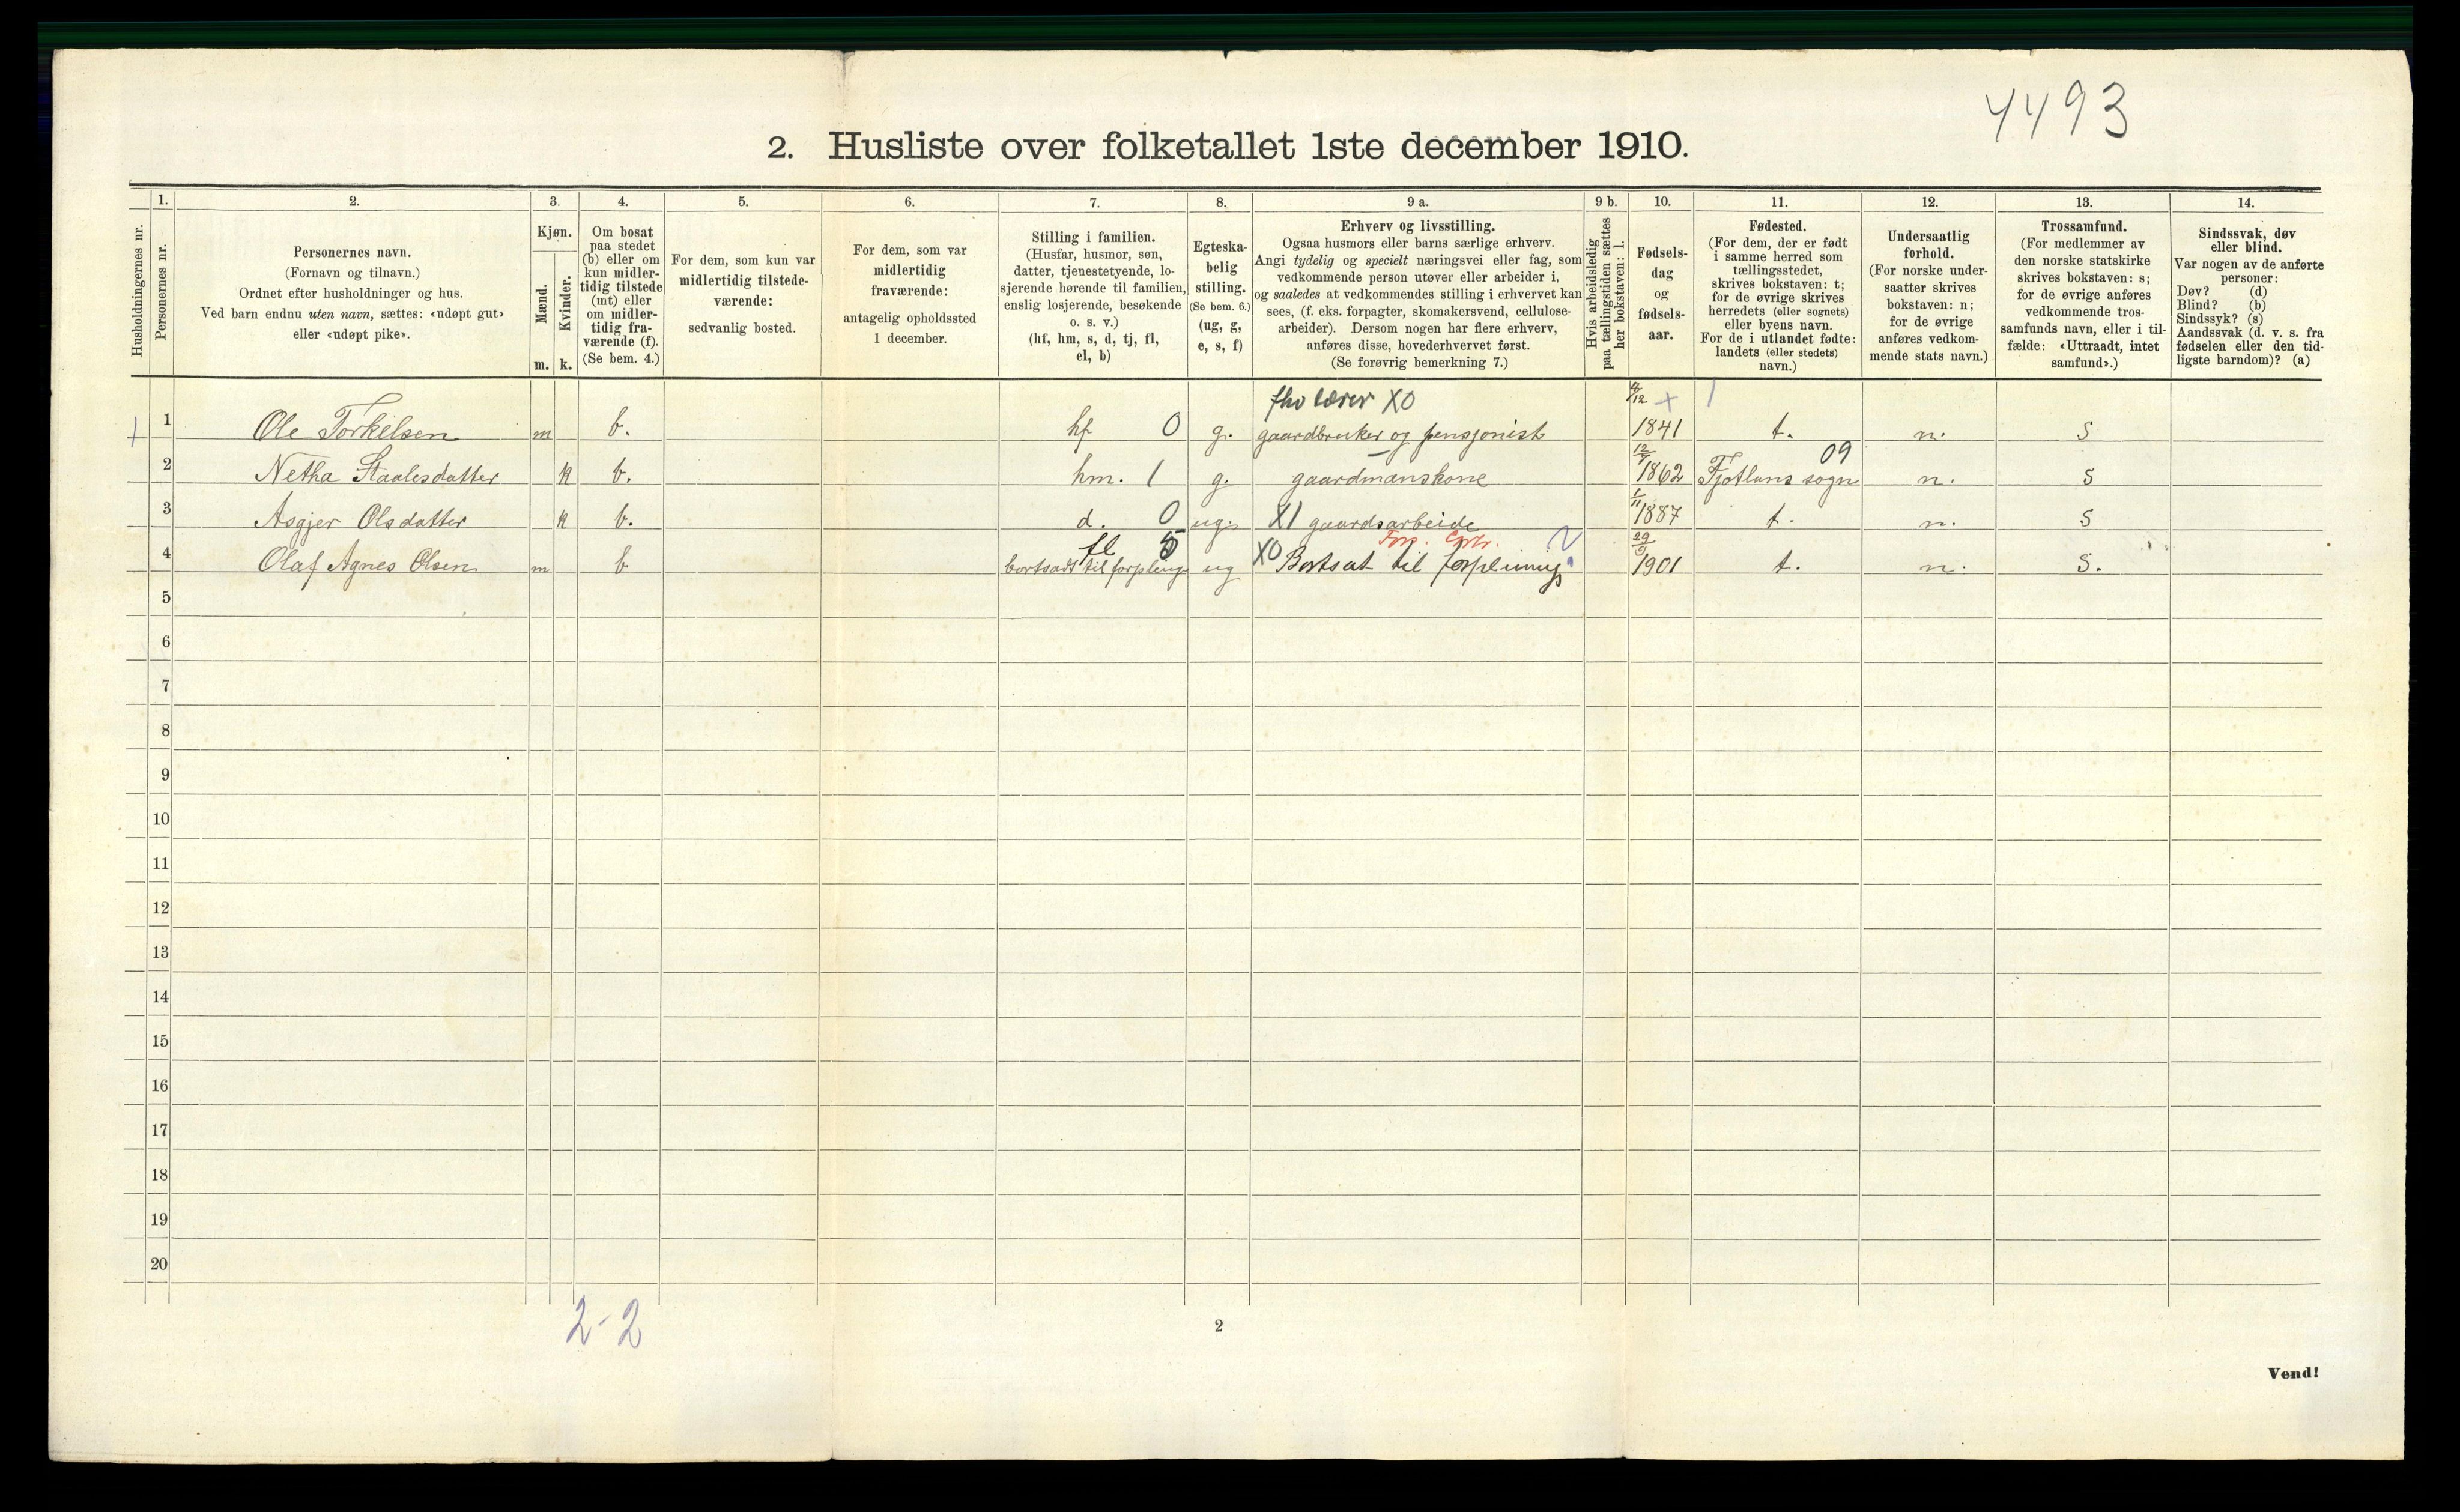 4493
2. Husliste over folketallet 1ste december 1910.
Husholdningernes nr.
1. Personernes nr.
2. Personernes navn. (Fornavn og tilnavn.) Ordnet efter husholdninger og hus. Ved barn endnu uten navn, sættes: «udøpt gut» eller «udøpt pike».
3. Kjøn. Mænd. m. Kvinder. k.
4. Om bosat paa stedet (b) eller om kun midlertidig tilstede (mt) eller om midlertidig fraværende (f). (Se bem. 4.)
5. For dem, som kun var midlertidig tilstedeværende: sedvanlig bosted.
6. For dem, som var midlertidig fraværende: antagelig opholdssted 1 december.
7. Stilling i familien. (Husfar, husmor, søn, datter, tjenestetyende, losjerende hørende til familien, enslig losjerende, besøkende o. s. v.) (hf, hm, s, d, tj, fl, el, b)
8. Egteskabelig stilling. (Se bem. 6.) (ug, g, e, s, f)
9 a. Erhverv og livsstilling. Ogsaa husmors eller barns særlige erhverv. Angi tydelig og specielt næringsvei eller fag, som vedkommende person utøver eller arbeider i, og saaledes at vedkommendes stilling i erhvervet kan sees, (f. eks. forpagter, skomakersvend, cellulosearbeider). Dersom nogen har flere erhverv, anføres disse, hovederhvervet først. (Se forøvrig bemerkning 7.)
9 b. Hvis arbeidsledig paa tællingstiden sættes her bokstaven: l.
10. Fødselsdag og fødselsaar.
11. Fødested. (For dem, der er født i samme herred som tællingsstedet, skrives bokstaven: t; for de øvrige skrives herredets (eller sognets) eller byens navn. For de i utlandet fødte: landets (eller stedets) navn.)
12. Undersaatlig forhold. (For norske undersaatter skrives bokstaven: n; for de øvrige anføres vedkommende stats navn.)
13. Trossamfund. (For medlemmer av den norske statskirke skrives bokstaven: s; for de øvrige anføres vedkommende trossamfunds navn, eller i tilfælde: «Uttraadt, intet samfund».)
14. Sindssvak, døv eller blind. Var nogen av de anførte personer: Døv? (d) Blind? (b) Sindssyk? (s) Aandssvak (d. v. s. fra fødselen eller den tidligste barndom)? (a)
fhv lærer X0
1 Ole Torkelsen m b. hf 0 g. gaardbruker og pensjonist 1841 t. n. s
09
2 Netha Staalesdatter k b. hm. 1 g. gaardmanskone 1862 Fjotland sogn n. s
3 Asgjer Olsdatter k b. d. 0 ug. X1 gaardsarbeide 1887 t. n. s
fl 5
4 Olaf Agnes Olsen m b bortsadt til forpleing ug X0 Bortsat til forpleining 29/9 1901 t. n. s.
5
6
7
8
9
10
11
12
13
14
15
16
17
18
19
20
2-2
2
Vend!